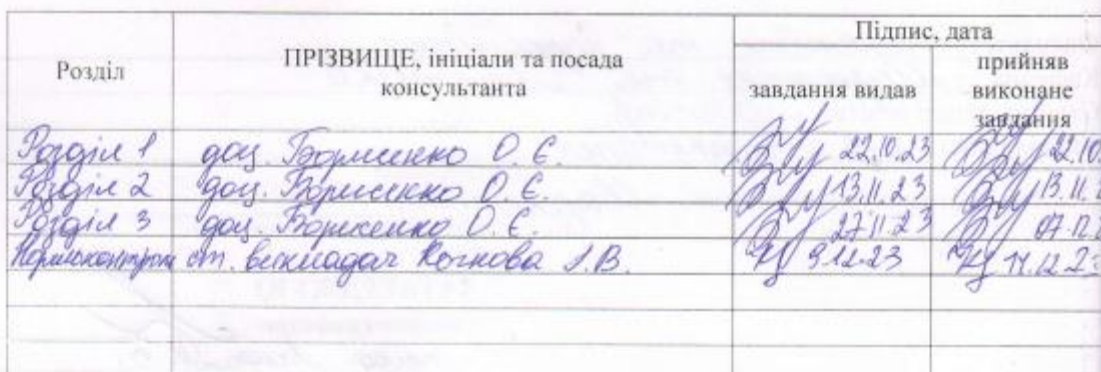 Розділ ПРІЗВИЩЕ, ініціали та посада консультанта Підпис, дата
завдання видав прийняв виконане завдання
Розділ 1 доц. Борисенко О. Є. 22.10.23 22.10
Розділ 2 доц. Борисенко О. Є. 13.11.23 13.11.2
Розділ 3 доц. Борисенко О. Є. 27.11.23 07.12.2
Нормоконтроль ст. викладач 9.12.23 11.12.23